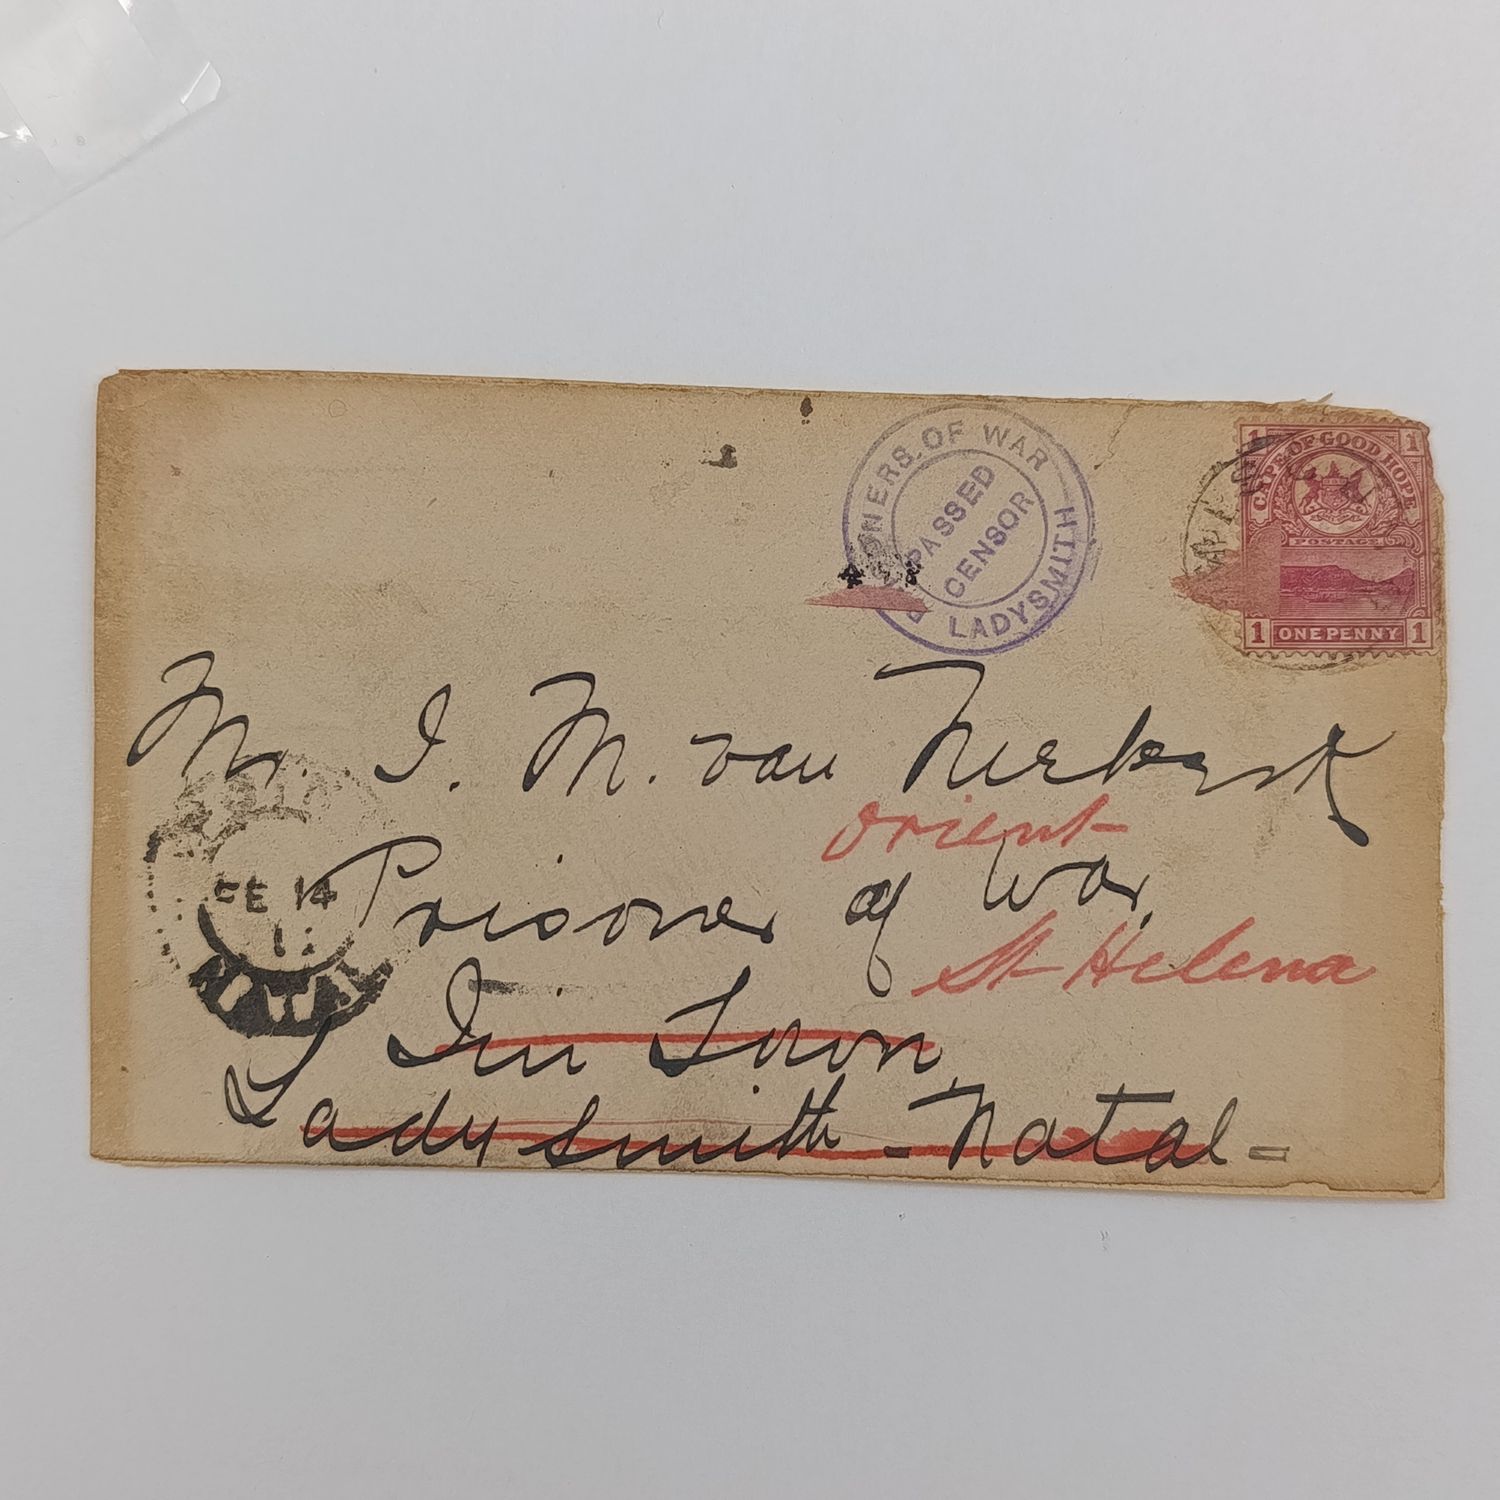 OF WAR
LADYSMITH
PASSED
CENSOR
1 1
CAPE OF GOOD HOPE
POSTAGE
1 ONE PENNY 1
Mr. I. M. van Niekerk
Orient
Prisoner of War,
St Helena
FE 14
Tin Town,
Ladysmith - Natal -